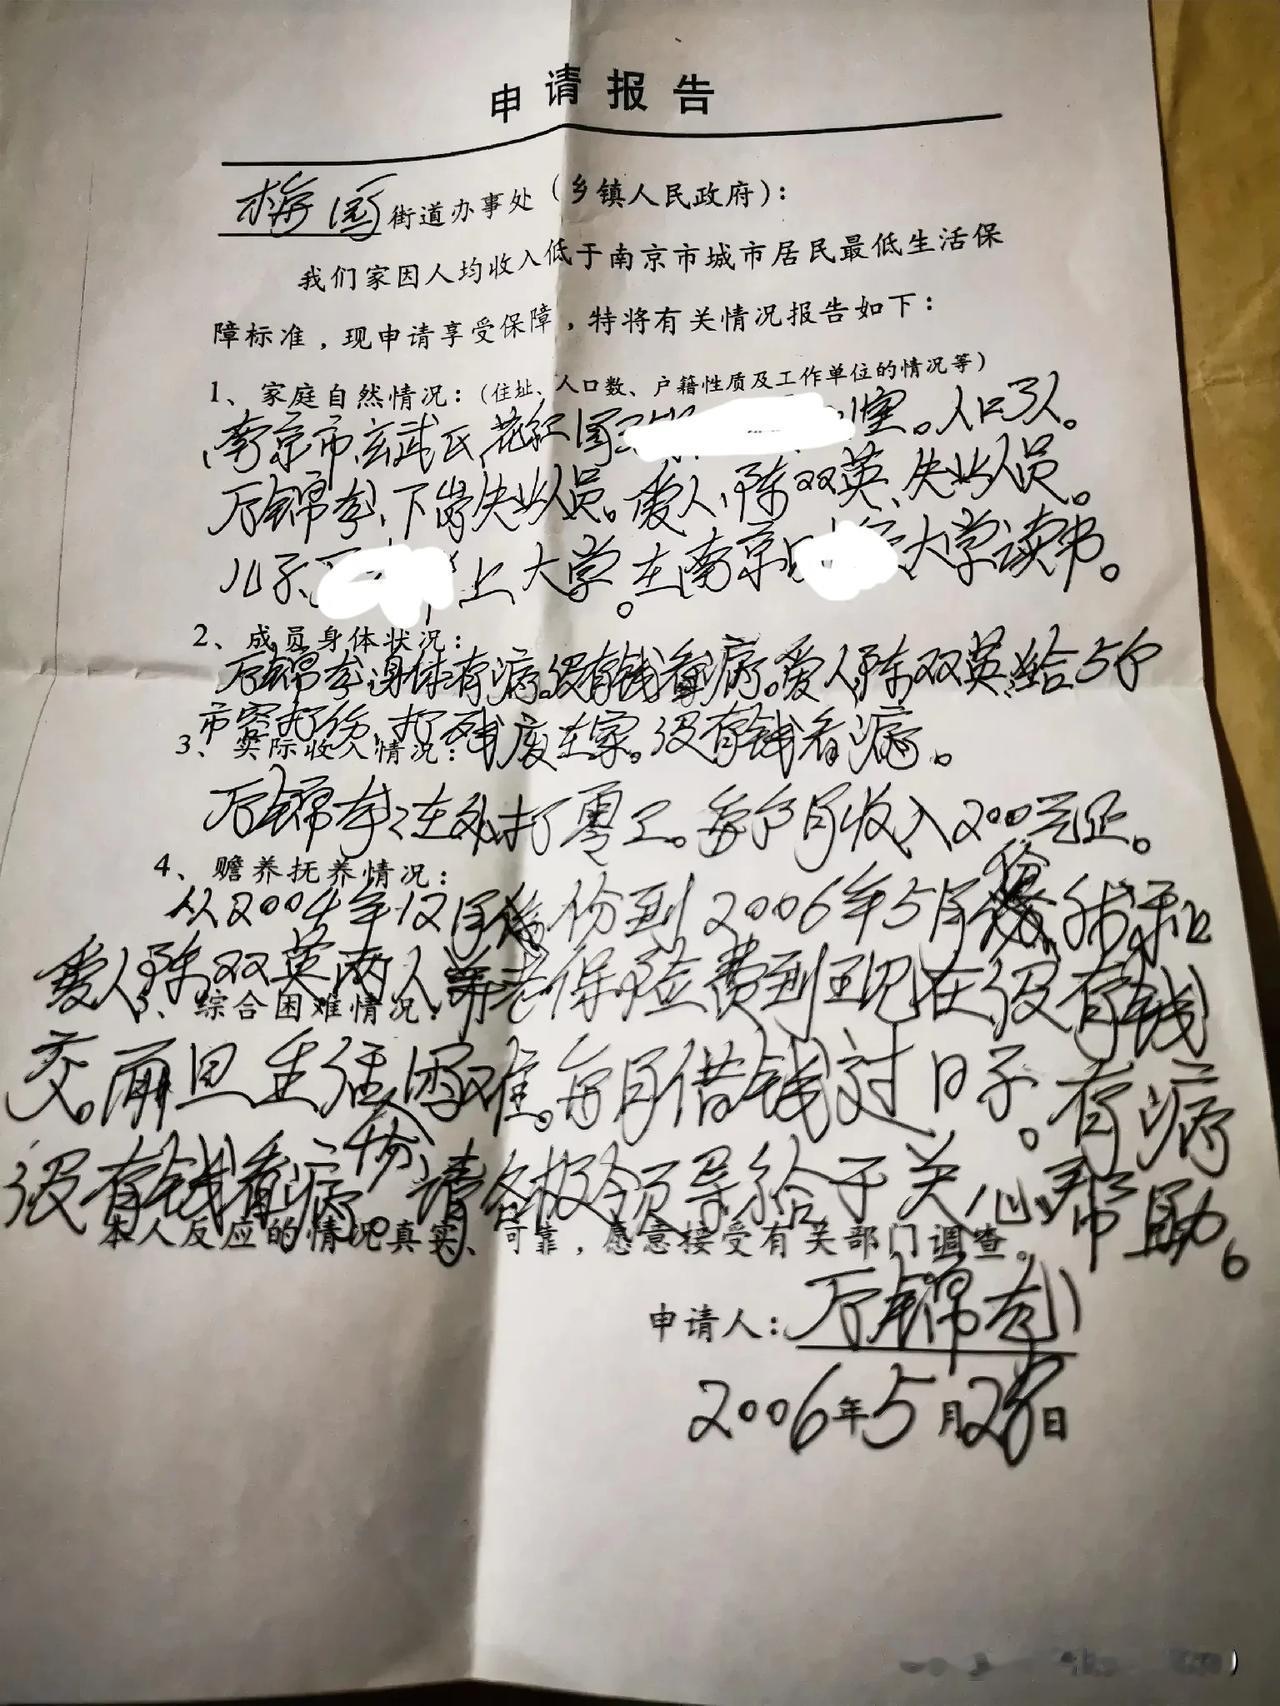 申请报告
梅园街道办事处（乡镇人民政府）：
我们家因人均收入低于南京市城市居民最低生活保
障标准，现申请享受保障，特将有关情况报告如下：
1、家庭自然情况：（住址、人口数、户籍性质及工作单位的情况等）
南京市玄武区花红园 室。人口3人。
厉锦 、下岗失业人员。爱人陈双英、失业人员。
儿子、 上大学。在南京 大学读书。
2、成员身体状况：
厉锦 身体有病。没有钱看病。爱人陈双英给5个
市容打伤、打残废在家。没有钱看病。
3、实际收入情况：
厉锦 在外打零工。每个月收入200元正。
4、赡养抚养情况：
从2004年12月份到2006年5月份、我和
爱人陈双英两人养老保险费到现在没有钱
5、综合困难情况：
交。而且生活困难。每月借钱过日子。有病
没有钱看病。请各级领导给于关心帮助。
本人反应的情况真实、可靠，愿意接受有关部门调查。
申请人：厉锦
2006年5月28日